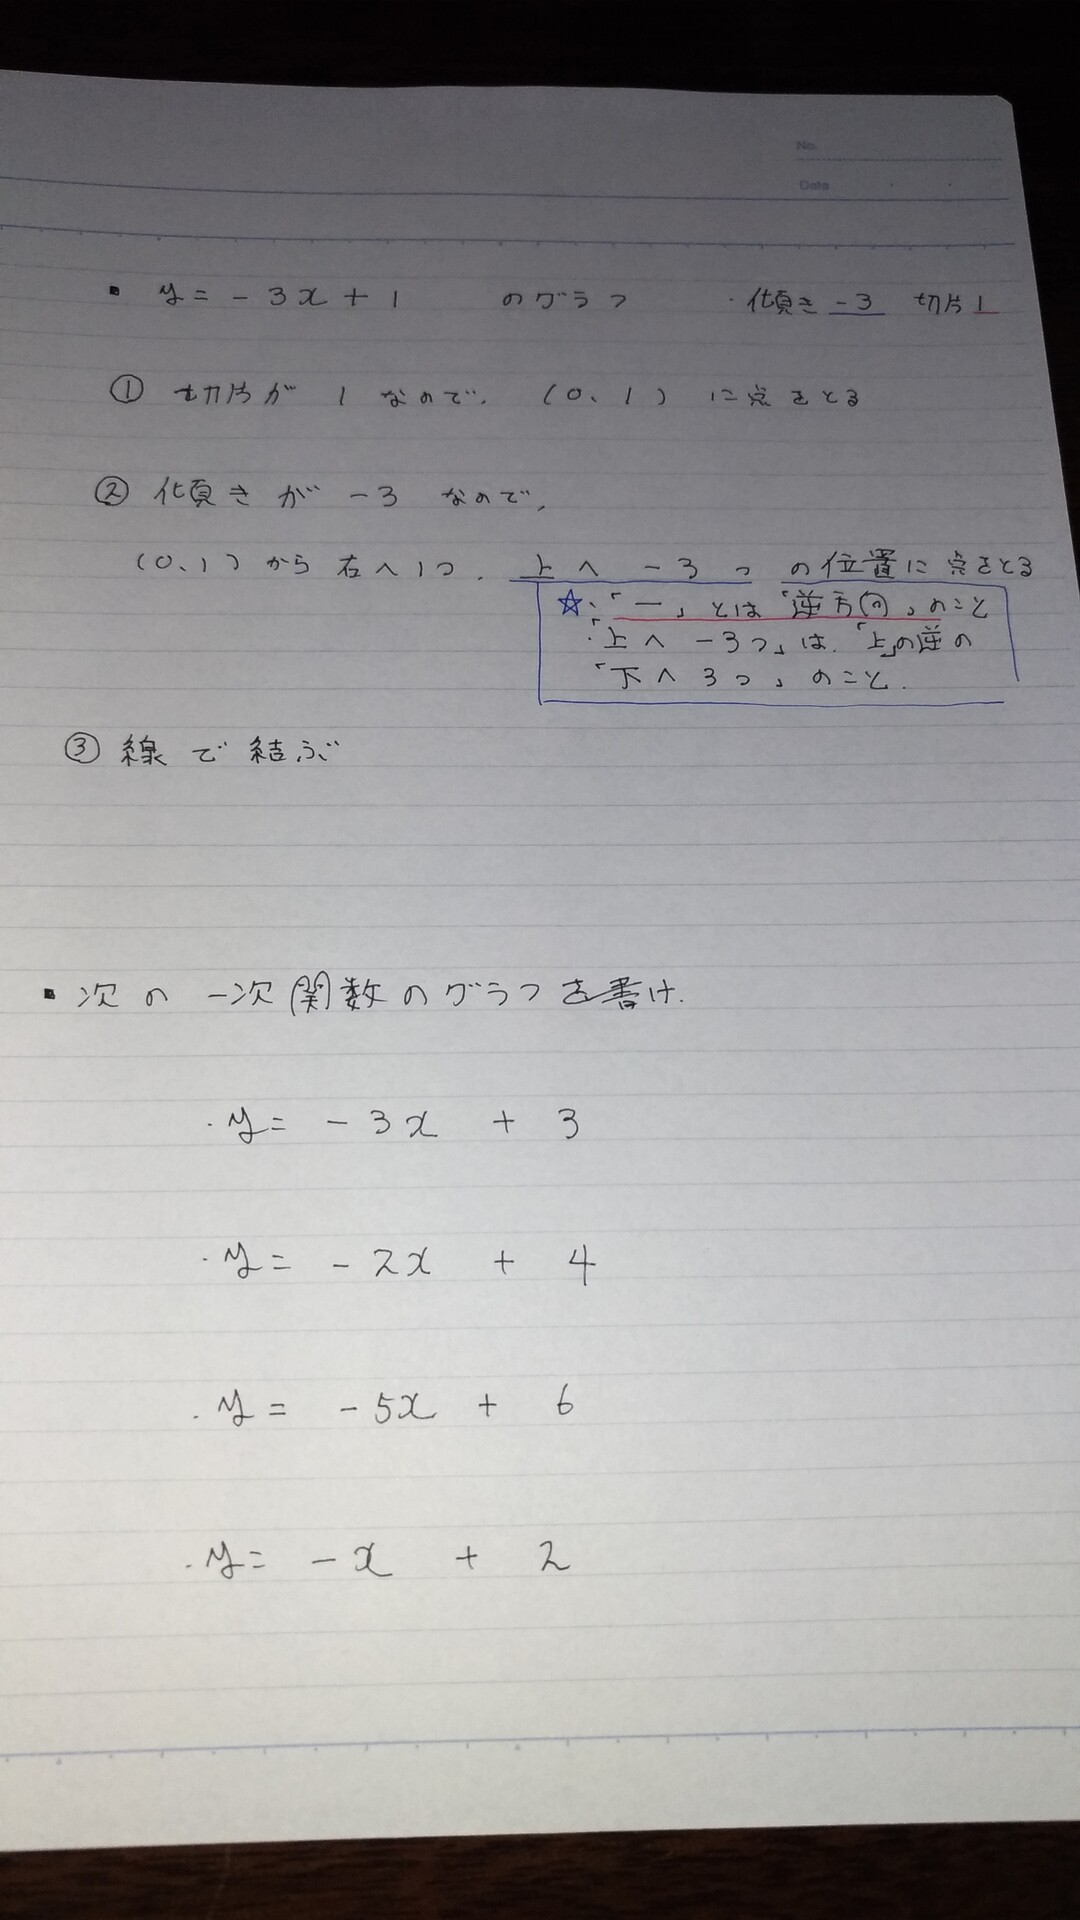 No.
Date
▪ y = -3x + 1 のグラフ ・傾き -3 切片 1
① 切片が 1 なので、(0、1) に点をとる
② 傾きが -3 なので、
(0、1) から右へ1つ、上へ -3つ の位置に点をとる
☆・「-」とは「逆方向」のこと
・「上へ -3つ」は、「上」の逆の
「下へ 3つ」のこと.
③ 線で結ぶ
▪ 次の一次関数のグラフを書け.
・y = -3x + 3
・y = -2x + 4
・y = -5x + 6
・y = -x + 2